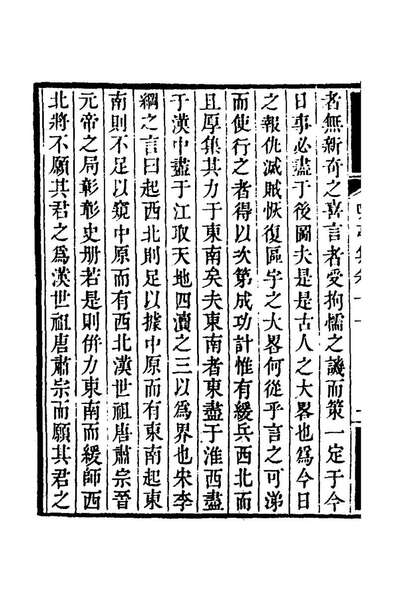 者無新奇之喜言者受拘懦之譏而策一定于今
日事必盡于後圖夫是古人之大畧也為今日
之報仇滅賊恢復區宇之大畧何從乎言之可涕
而使行之者得以次第成功計惟有緩兵西北而
且厚集其力于東南矣夫東南者東盡于淮西盡
于漢中盡于江取天地四瀆之三以為界也宋李
綱之言曰起西北則足以據中原而有東南起東
南則不足以窺中原而有西北漢世祖唐肅宗晉
元帝之局彰彰史册若是則倂力東南而緩師西
北將不願其君之為漢世祖唐肅宗而願其君之